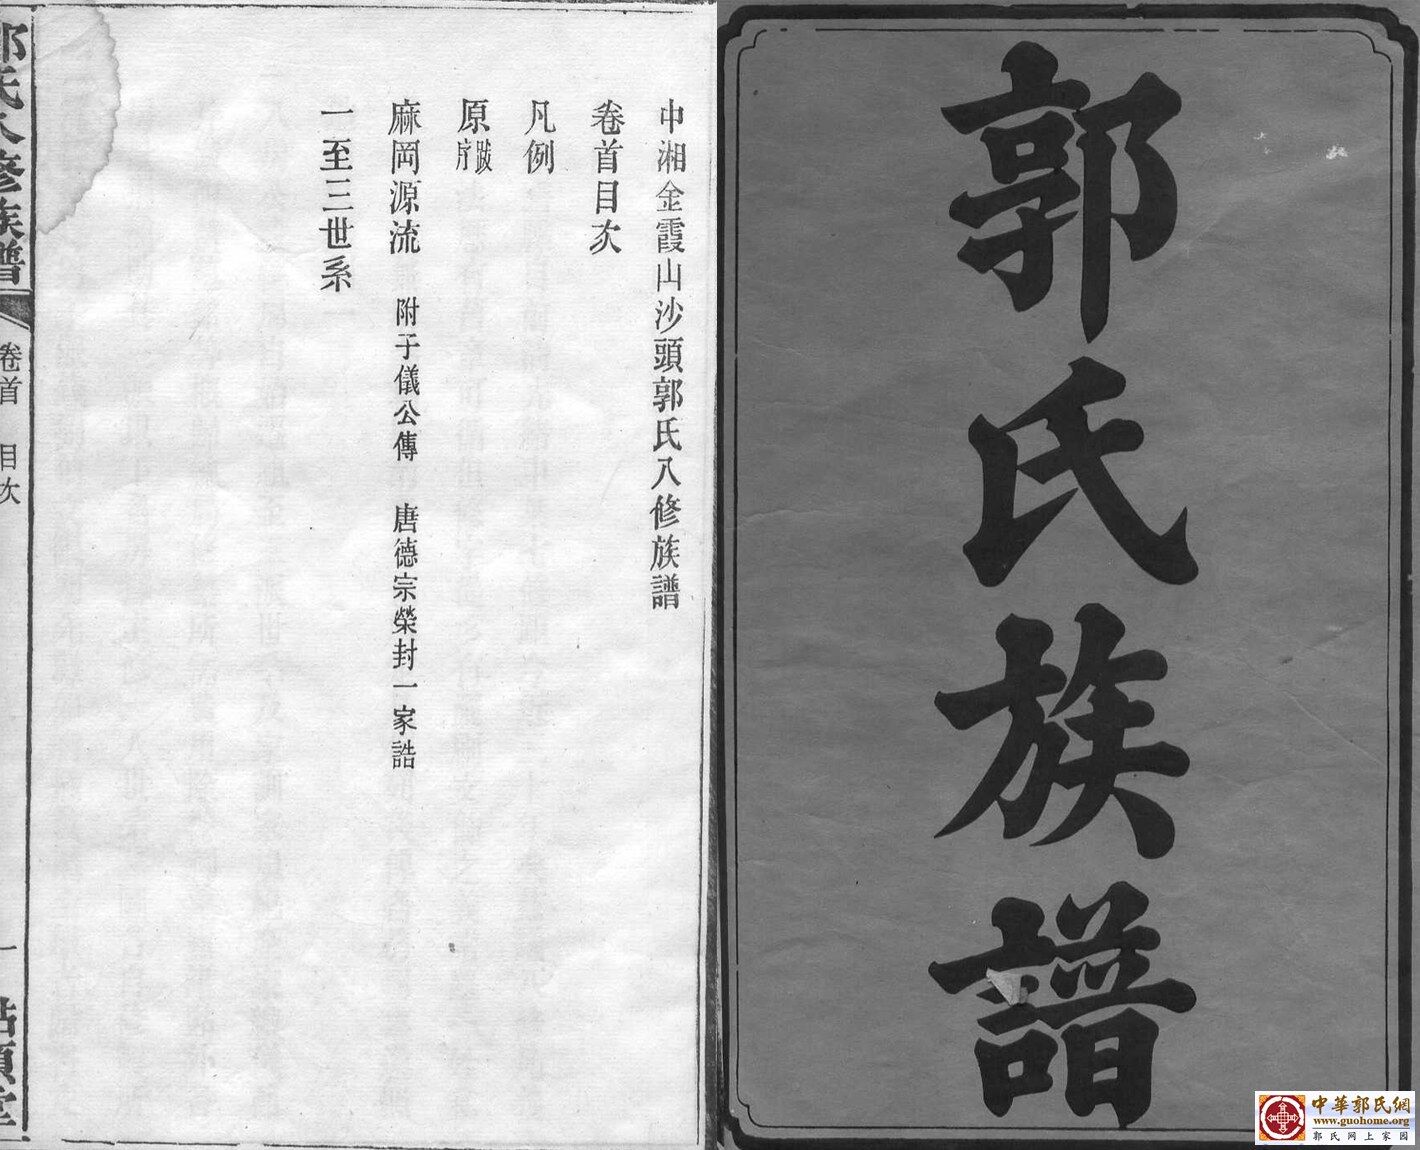 郭氏族譜
中湘金霞山沙頭郭氏八修族譜
卷首目次
凡例
原序跋
麻岡源流 附子儀公傳 唐德宗榮封一家誥
一至三世系
郭氏八修族譜 卷首 目次 一
中華郭氏網
www.guohome.org
郭氏网上家园